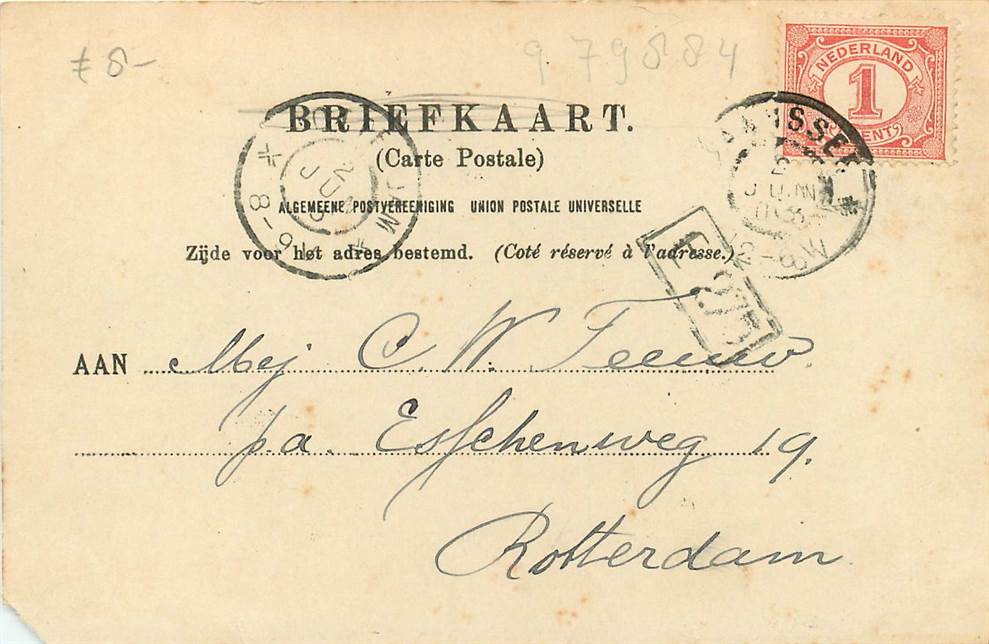 £ 8-
979884
NEDERLAND
1
CENT
BRIEFKAART.
(Carte Postale)
ALGEMEENE POSTVEREENIGING UNION POSTALE UNIVERSELLE
Zijde voor het adres bestemd. (Coté réservé à l'adresse.)
8-9
JUN
AAN Mej C. W. Feeuw
p.a. Esschenweg 19.
Rotterdam